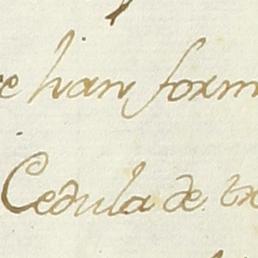 han, form
Cedula de